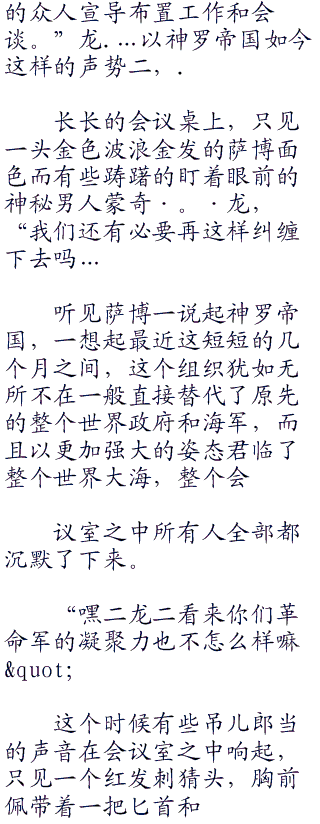 的众人宣导布置工作和会
谈。”龙.…以神罗帝国如今
这样的声势二，.
长长的会议桌上，只见
一头金色波浪金发的萨博面
色而有些踌躇的盯着眼前的
神秘男人蒙奇·。·龙，
“我们还有必要再这样纠缠
下去吗…
听见萨博一说起神罗帝
国，一想起最近这短短的几
个月之间，这个组织犹如无
所不在一般直接替代了原先
的整个世界政府和海军，而
且以更加强大的姿态君临了
整个世界大海，整个会
议室之中所有人全部都
沉默了下来。
“嘿二龙二看来你们革
命军的凝聚力也不怎么样嘛
&quot;
这个时候有些吊儿郎当
的声音在会议室之中响起，
只见一个红发刺猜头，胸前
佩带着一把匕首和